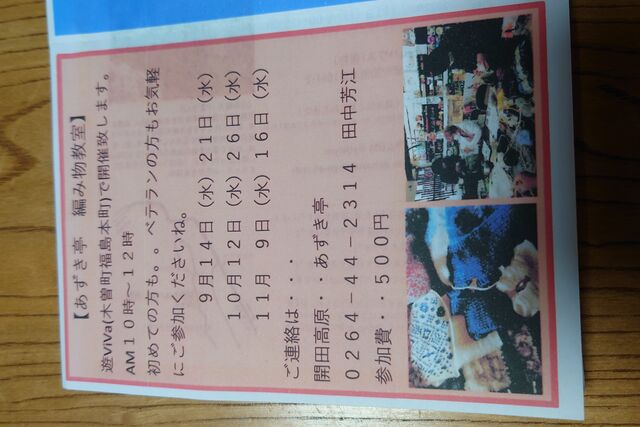 【あずき亭　編み物教室】
遊ViVa(木曽町福島本町)で開催致します。
AM１０時～１２時
初めての方も。。ベテランの方もお気軽
にご参加くださいね。
９月１４日（水）２１日（水）
１０月１２日（水）２６日（水）
１１月　９日（水）１６日（水）
ご連絡は・・・
開田高原・・あずき亭
０２６４－４４－２３１４　田中芳江
参加費・・５００円